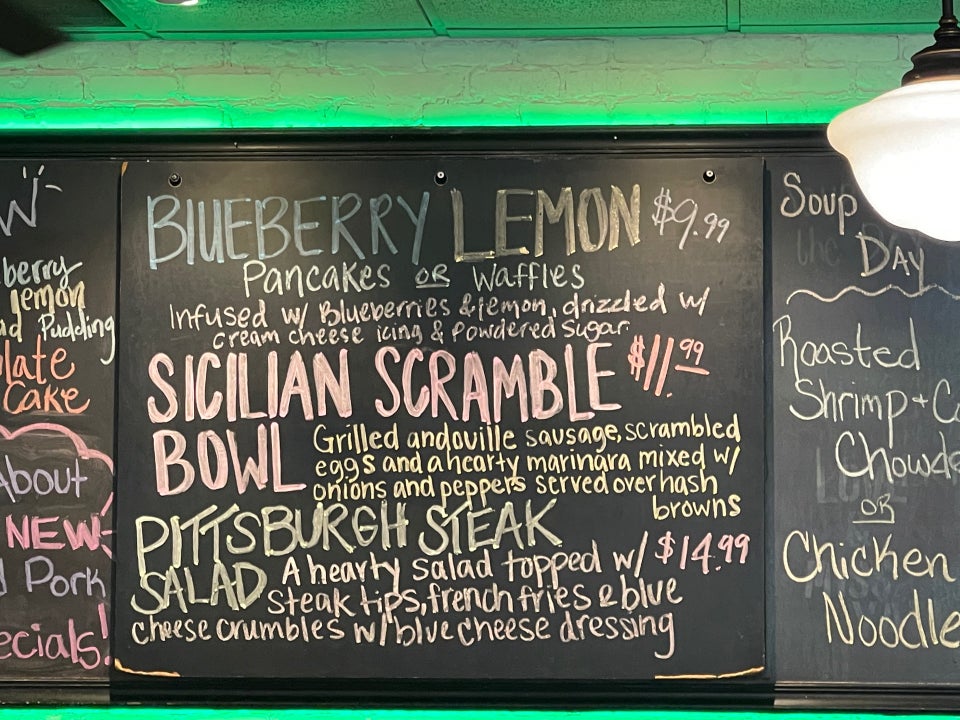 BLUEBERRY LEMON $9.99
Pancakes OR Waffles
Infused w/ Blueberries & lemon, drizzled w/
cream cheese icing & Powdered Sugar
SICILIAN SCRAMBLE $11.99
BOWL Grilled andoville sausage, scrambled
eggs and a hearty marinara mixed w/
onions and peppers served over hash
browns
PITTSBURGH STEAK
SALAD A hearty salad topped w/ $14.99
steak tips, french fries & blue
cheese crumbles w/ blue cheese dressing
berry
lemon
Pudding
Cake
About
NEW
Pork
Soup
DAY
Roasted
Shrimp +
OR
Chicken
Noodle